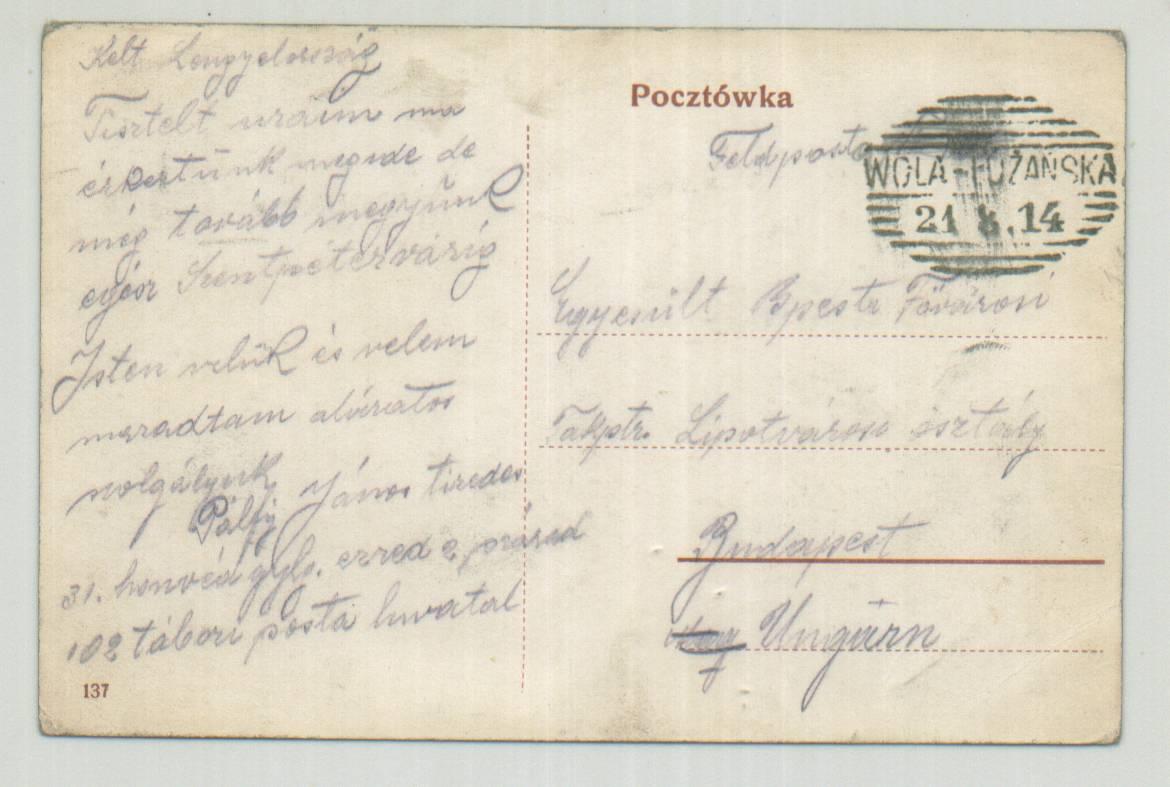 Kelt Lengyelország
Tisztelt uraim ma
érkeztünk megide de
még tovább megyünk
egész Szentpétervárig
Isten velük és velem
maradtam alázatos
szolgájuk
Pálfy János tizedes
31. honvéd gylg. ezred 2 század
102 tábori posta hivatal
137
Pocztówka
Feldposta
WOLA-ŁUŻAŃSKA
21 8.14
Egyesült Bpesti Fővárosi
Takptr. Lipotvárosi osztály
Budapest
Ungarn